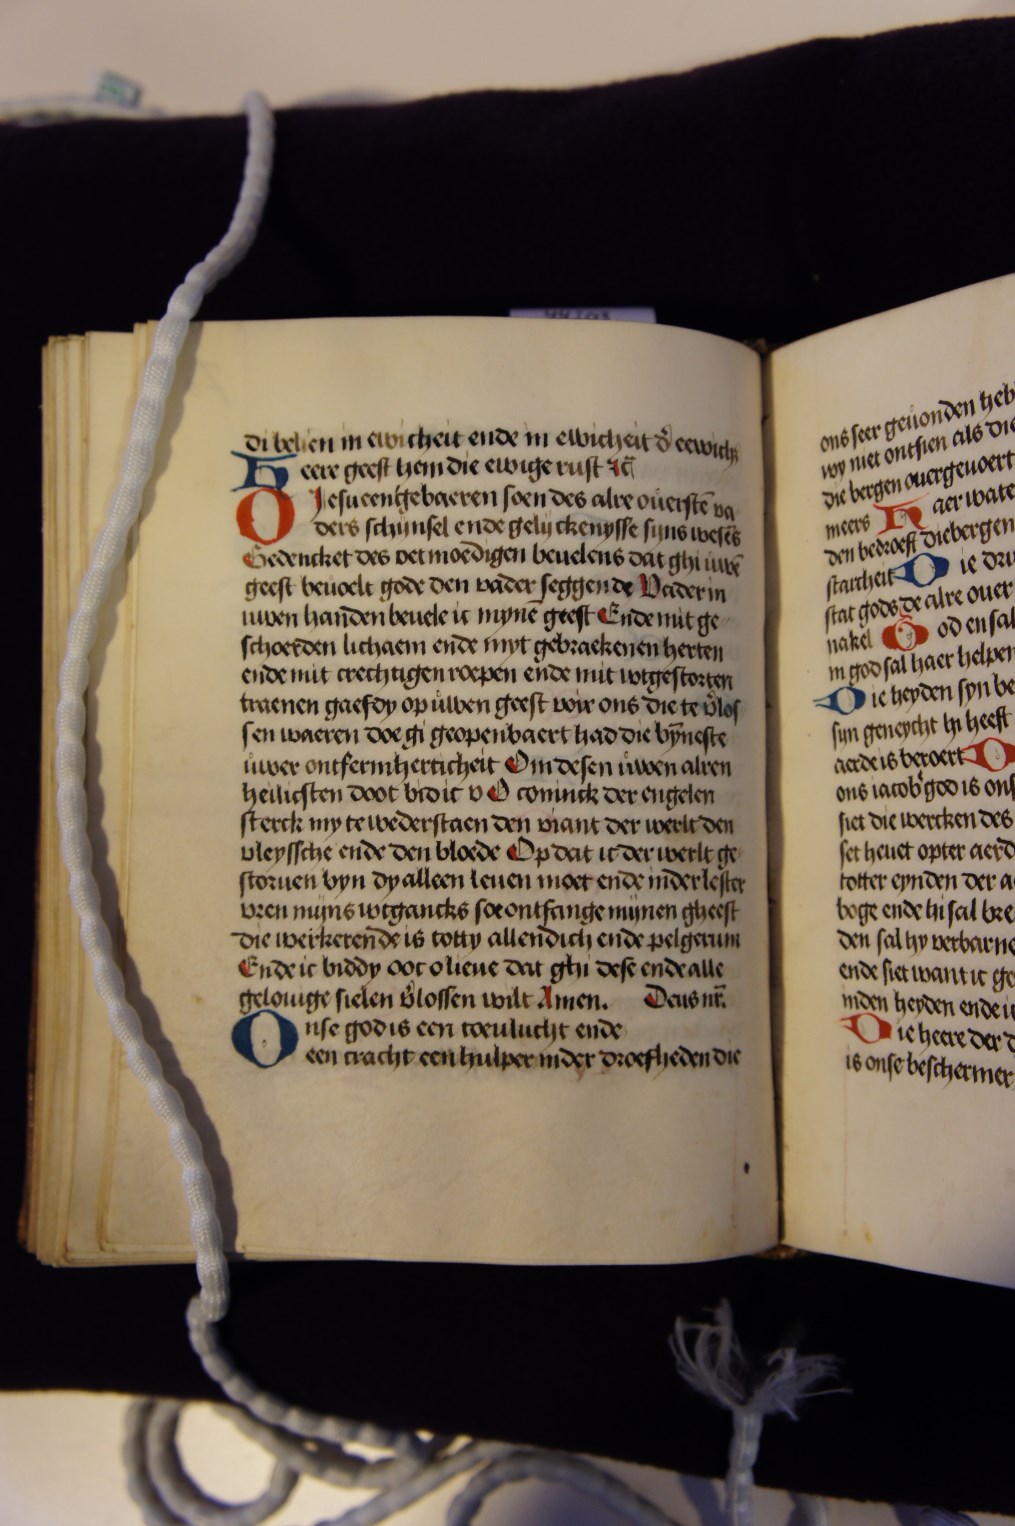 di beliien in ewicheit ende in ewicheit d̉ eewich
Heere geest hem die ewige rust
O Jesu eengebaeren soen des alre ouersten va
ders schijnsel ende gelijckenysse sijns wesēs
Gedencket des oetmoedigen beuelens dat ghi uwē
geest beuoelt gode den vader seggende Vader in
uwen handen beuele ic mynē geest Ende mit ge
schoerden lichaem ende myt gebraekenen herten
ende mit crechtigen roepen ende mit wtgestorten
traenen gaefdy op uwen geest voir ons die te v̉los
sen waeren doe gi geopenbaert had die bȳneste
uwer ontfermherticheit Om desen uwen alren
heilicsten doot bid ic v O coninck der engelen
sterck my te wederstaen den viant der werlt den
vleyssche ende den bloede Op dat ic der werlt ge
storuen byn dy alleen leuen moet ende in der lester
vren mijns wtgancks soe ontfange mijnen gheest
die werkerende is tot ty allendich ende pelgerum
Ende ic biddy oec o lieue dat ghi dese ende alle
gelouige sielen v̉lossen wilt Amen. Deus nr̄.
Onse god is een toeulucht ende
een cracht een hulper inder droefheden die
ons seer geuonden heb
wy niet ontsien als die
die bergen ouergeuoert
meers Haer wate
den bedroeft die bergen
starcheit Die dru
stat gods de alre ouer
nakel God en sal
in god sal haer helpen
Die heyden syn be
sijn geneycht hi heeft
aerde is beroert D
ons iacob god is ons
siet die wercken des
set heuet opter aerd
totter eynden der a
boge ende hi sal bre
den sal hy verbarne
ende siet want ic go
inden heyden ende i
Die heere der d
is onse beschermer